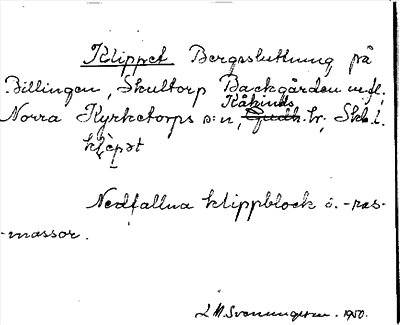 Klippet Bergssluttning på
Billingen, Skultorp Backgården m.fl.
Kåkinds
Norra Kyrketorps s:n, Gudh. hr, Skb. l.
Nedfallna klippblock o. -ras-
-massor.
L M Svenungsson. 1950.